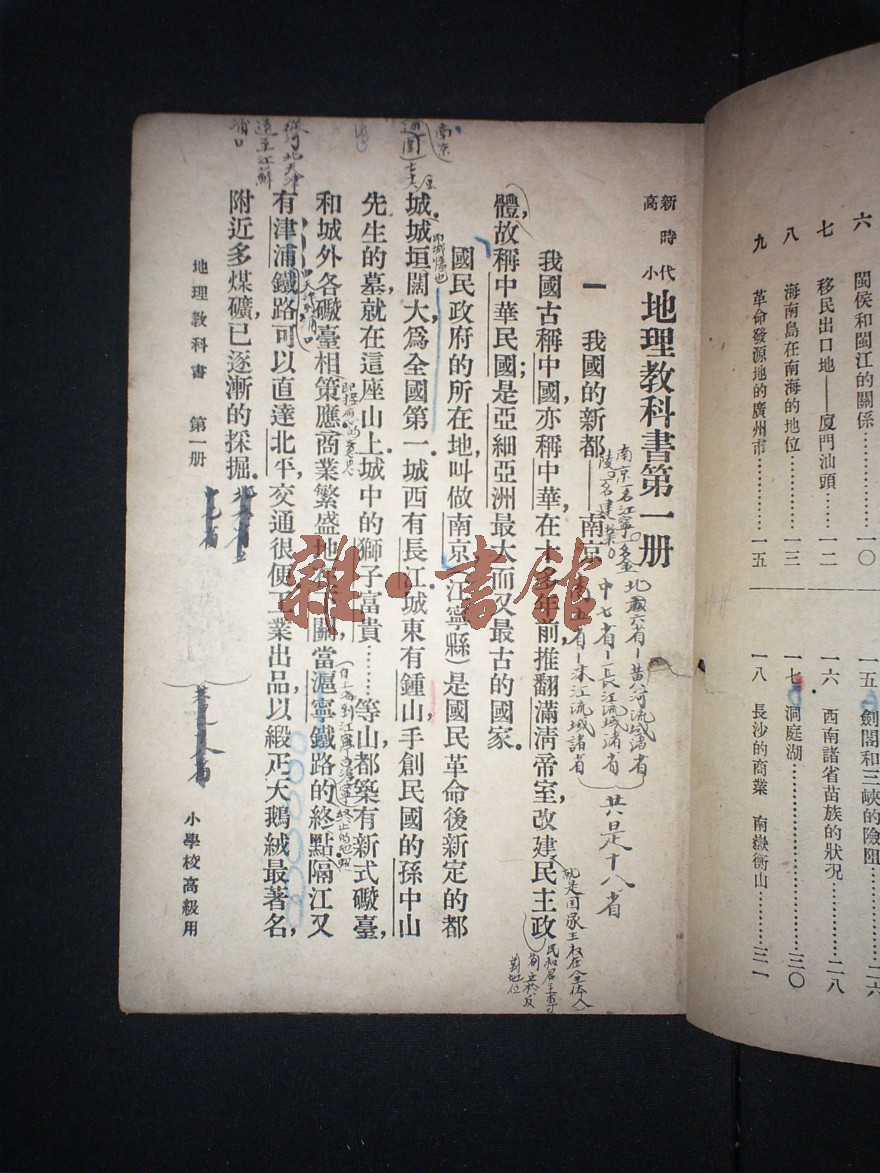 新時代
高小
地理教科書第一册
一　我國的新都——南京
我國古稱中國，亦稱中華，在十多年前，推翻滿淸帝室，改建民主政
體，故稱中華民國；是亞細亞洲最大而又最古的國家。
國民政府的所在地，叫做南京（江寧縣）是國民革命後新定的都
城。城垣闊大，爲全國第一。城西有長江，城東有鍾山，手創民國的孫中山
先生的墓，就在這座山上。城中的獅子富貴……等山，都築有新式礮臺，
和城外各礮臺相策應。商業繁盛地在下關，當滬寧鐵路的終點，隔江又
有津浦鐵路，可以直達北平，交通很便。工業出品，以緞疋天鵝絨最著名，
附近多煤礦，已逐漸的採掘。
地理教科書　第一册
小學校高級用
南京一名江寧一名金
陵一名建業
北六省－黃河流域諸省
中七省－長江流域諸省
南五省－珠江流域諸省
共是十八省
就是国家主权在全体人
民和君主專
制立於反
對地位
南京
即城牆也
即接應的意思
自上海到江寧的滬寧終止的地點
從河北天津
達至江蘇
浦口
雜·書館
六　閩侯和閩江的關係……一〇
七　移民出口地——廈門汕頭……一二
八　海南島在南海的地位……一三
九　革命發源地的廣州市……一五
一五　劍閣和三峽的險阻……二六
一六　西南諸省苗族的狀況……二八
一七　洞庭湖……三〇
一八　長沙的商業　南嶽衡山……三一